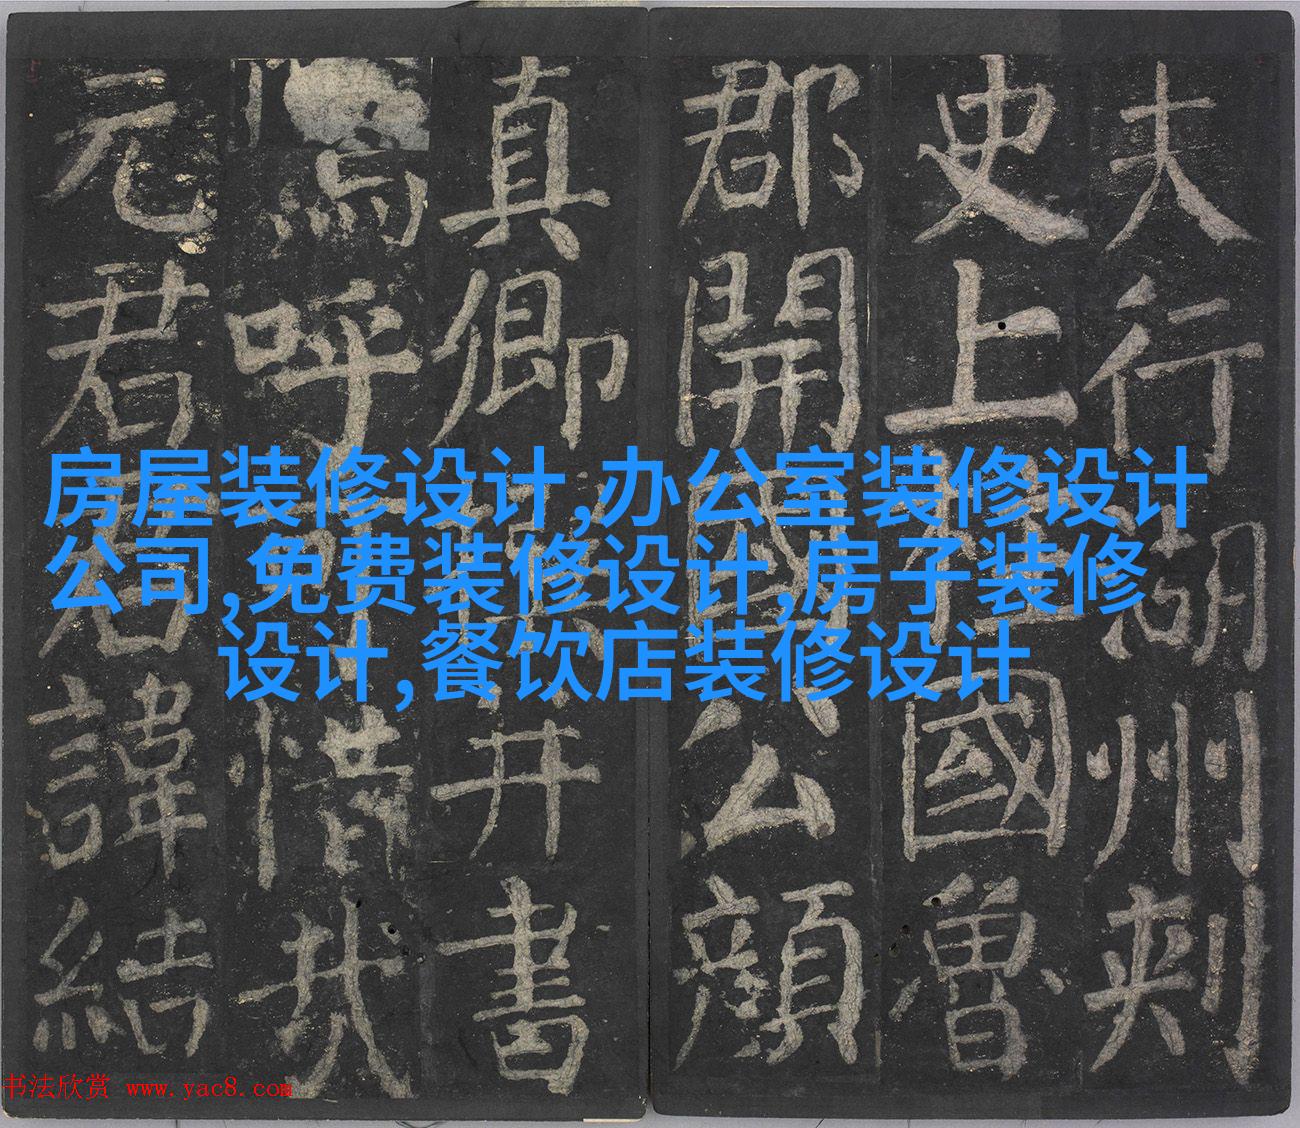 夫行湖州刾
史上柱國魯
郡開國公顔
真卿撰并書
嗚呼可惜哉
元君君諱結
房屋装修设计,办公室装修设计
公司,免费装修设计,房子装修
设计,餐饮店装修设计
书法欣赏 www.yac8.com